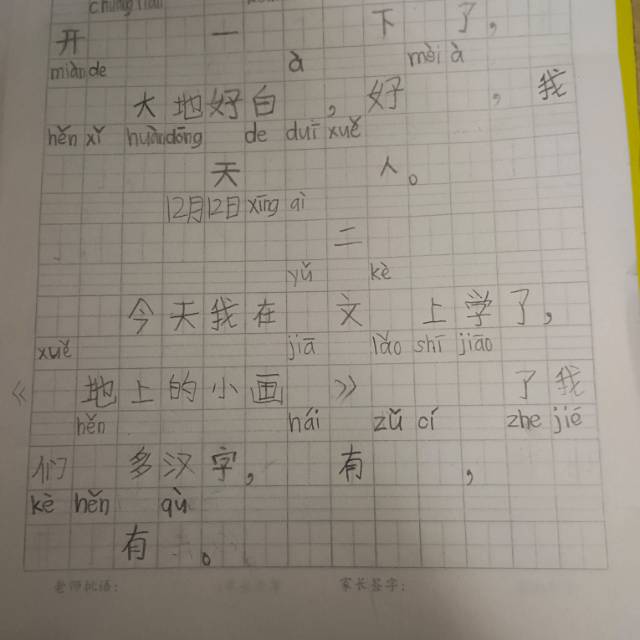 开 一 下 了，
miàn de à mèi à
大地好白，好，我
hěn xǐ huān dōng de duī xuě
天 人。
12月12日 xīng ài
二
yǔ kè
今天我在 文 上学了，
xuě jiā lǎo shī jiāo
《 地上的小画 》 了我
hěn hái zǔ cí zhe jié
们 多汉字，有 ，
kè hěn qù
有 。
老师批语： 家长签字：